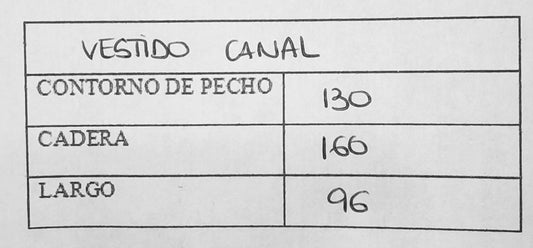 VESTIDO CANAL
CONTORNO DE PECHO 130
CADERA 160
LARGO 96